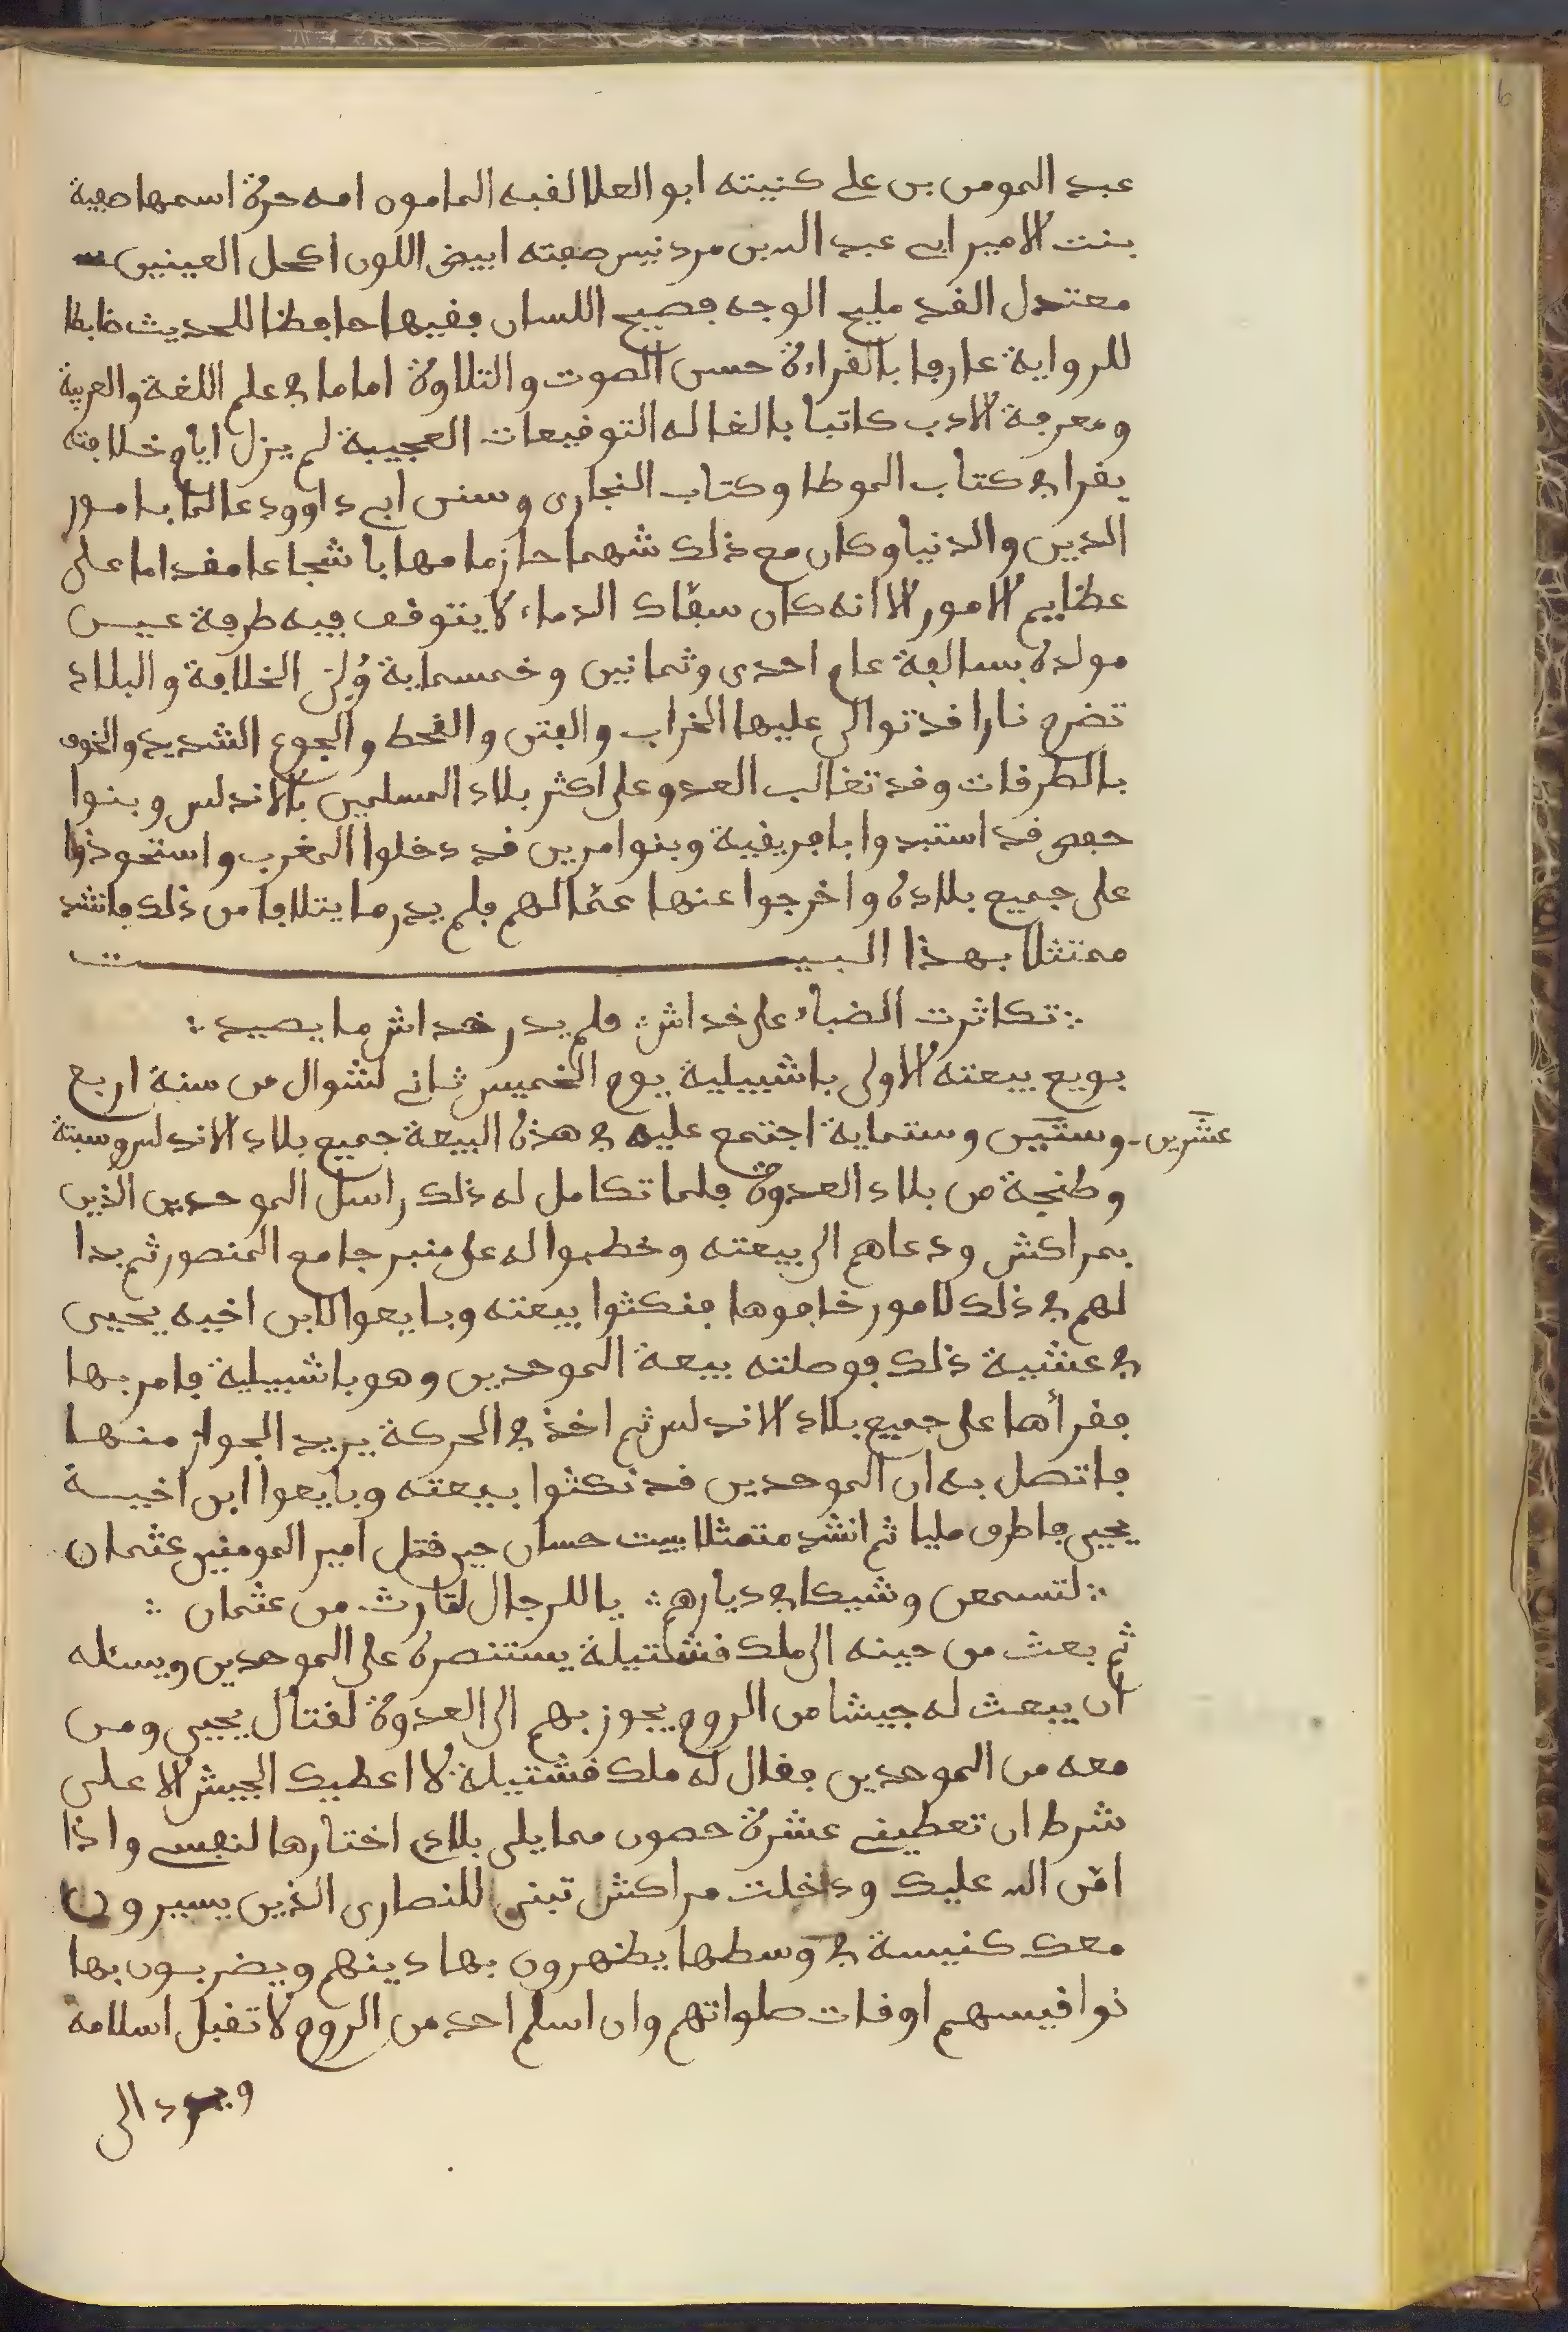 عبد المومن بن على كنيته ابو العلا لقبه المامون امه حرة اسمها صفية
بنت الامير ابى عبد الله بن مردنيس صفته ابيض اللون اكحل العينين
معتدل القد مليح الوجه فصيح اللسان فقيها حافظا للحديث ضابطا
للرواية عارفا بالقراءة حسن الصوت والتلاوة اماما في علم اللغة والعربية
ومعرفة الادب كاتبا بالغا له التوقيعات العجيبة لم يزل ايام خلافته
يقرا في كتاب الموطا وكتاب البخارى وسنن ابى داوود عالما بامور
الدين والدنيا وكان مع ذلك شهما حازما مهابا شجاعا مقداما على
عظايم الامور الا انه كان سفّاك الدماء لا يتوقف فيه طرفة عين
مولده بسالفة عام احدى وثمانين وخمسماية وُلِىَ الخلافة والبلاد
تضرم نارا قد توالى عليها الخراب والفتن والقحط والجوع الشديد والخوف
بالطرقات وقد تغالب العدو على اكثر بلاد المسلمين بالاندلس وبنوا
حفص قد استبدوا بافريقية وبنوا مرين قد دخلوا المغرب واستحوذوا
على جميع بلاده واخرجوا عنها عمّالهم فلم يدر ما يتلافا من ذلك فانشد
ممتثلا بهذا البيت
؞ تكاثرت الضباء على خداش ؞ فلم يدر خداش ما يصيد ؞
بويع بيعته الاولى باشبيلية يوم الخميس ثانى لشوال من سنة اربع
عشرين وستين وستماية اجتمع عليه في هذه البيعة جميع بلاد الاندلس وسبتة
وطنجة من بلاد العدوة فلما تكامل له ذلك راسل الموحدين الذين
بمراكش ودعاهم الى بيعته وخطبوا له على منبر جامع المنصور ثم بدا
لهم في ذلك لامور خافوها فنكثوا بيعته وبايعوا لابن اخيه يحيى
في عشية ذلك فوصلته بيعة الموحدين وهو باشبيلية فامر بها
فقرأها على جميع بلاد الاندلس ثم اخذ في الحركة يريد الجواز منها
فاتصل به ان الموحدين قد نكثوا بيعته وبايعوا ابن اخيه
يحيى فاطرق مليا ثم انشد متمثلا ببيت حسان حين قتل امير المومنين عثمان
؞ لتسمعن وشيكا في ديارهم ؞ يا للرجال لثارث من عثمان ؞
ثم بعث من حينه الى ملك قشتيلة يستنصره على الموحدين ويسئله
ان يبعث له جيشا من الروم يجوز بهم الى العدوة لقتال يحيى ومن
معه من الموحدين فقال له ملك قشتيلة لا اعطيك الجيش الا على
شرط ان تعطينى عشرة حصون مما يلى بلادى اختارها لنفسى واذا
امّن الله عليك ودخلت مراكش تبنى للنصارى الذين يسيرون
معك كنيسة في وسطها يظهرون بها دينهم ويضربون بها
نواقيسهم اوقات صلواتهم وان اسلم احد من الروم لا تقبل اسلامه
ويرد الى